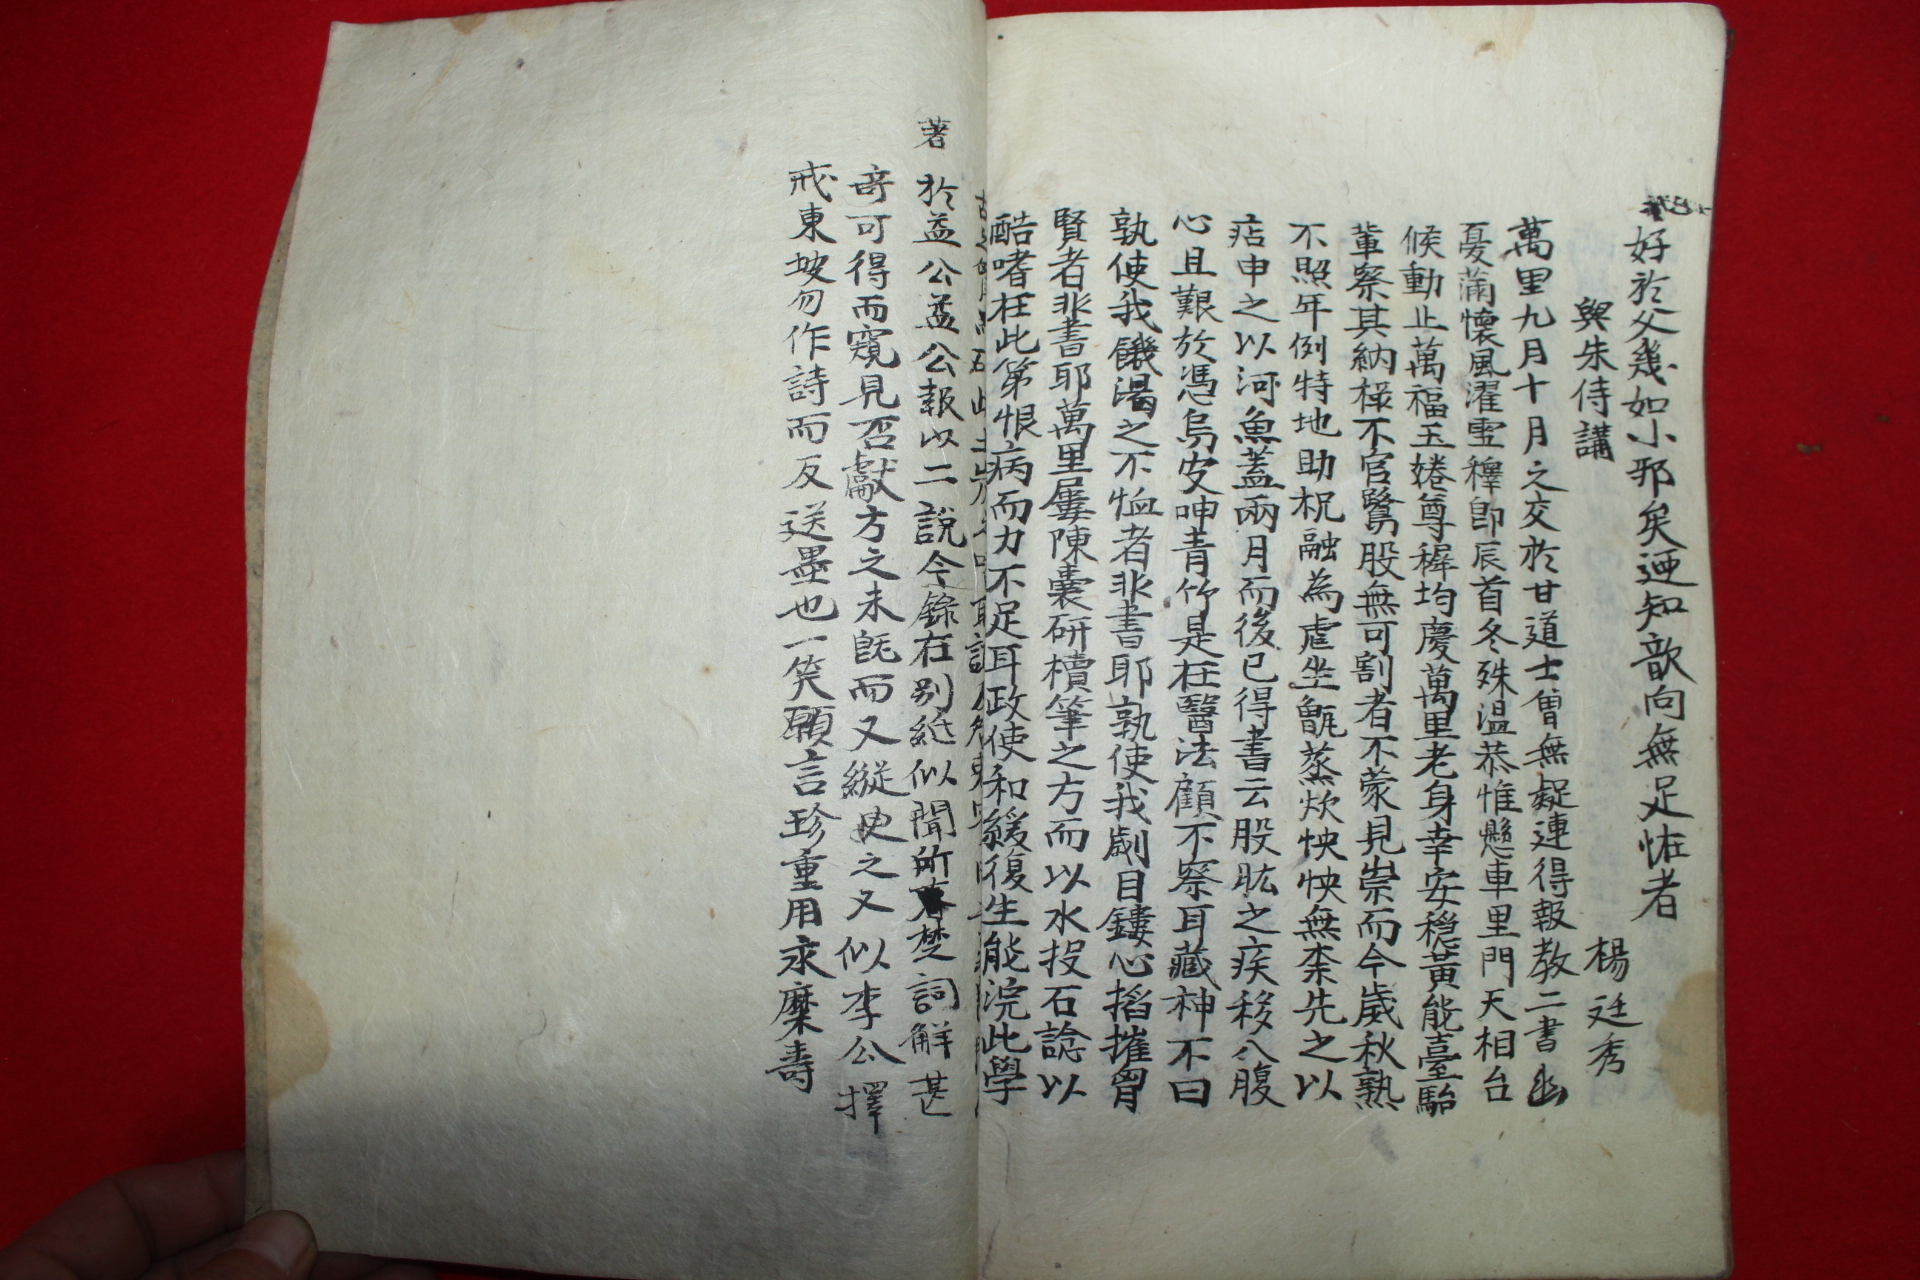 好於父幾如小邪矣逕知歆向無足恠者
與朱侍講 楊廷秀
萬里九月十月之交於甘道士僧無疑連得報教二書出
憂蒲懷風濯雪穉即辰首冬殊溫恭惟懸車里門天相台
候動止萬福玉婘尊穉均慶萬里老身幸安穏黃能臺駘
軰察其納祿不官鷺股無可割者不蒙見崇而今歲秋熟
不照年例特地助祝融為虐坐甑蒸炊怏怏無柰先之以
痁申之以河魚蓋兩月而後已得書云股肱之疾移八腹
心且艱於馮烏皮呻青竹是在醫法顧不察耳藏神不曰
孰使我饑渴之不恤者非書耶孰使我劌目鏤心搯摧胃
賢者非書耶萬里屢陳囊研櫝筆之方而以水投石諗以
酷嗜在此第恨病而力不足耳政使和緩復生能浣此學
著於益公益公報以二說今錄在別紙似聞所 楚詞解甚
奇可得而窺見否獻方之未旣而又縱臾之又似李公擇
戒東坡勿作詩而反送墨也一笑願言珍重用永麋壽